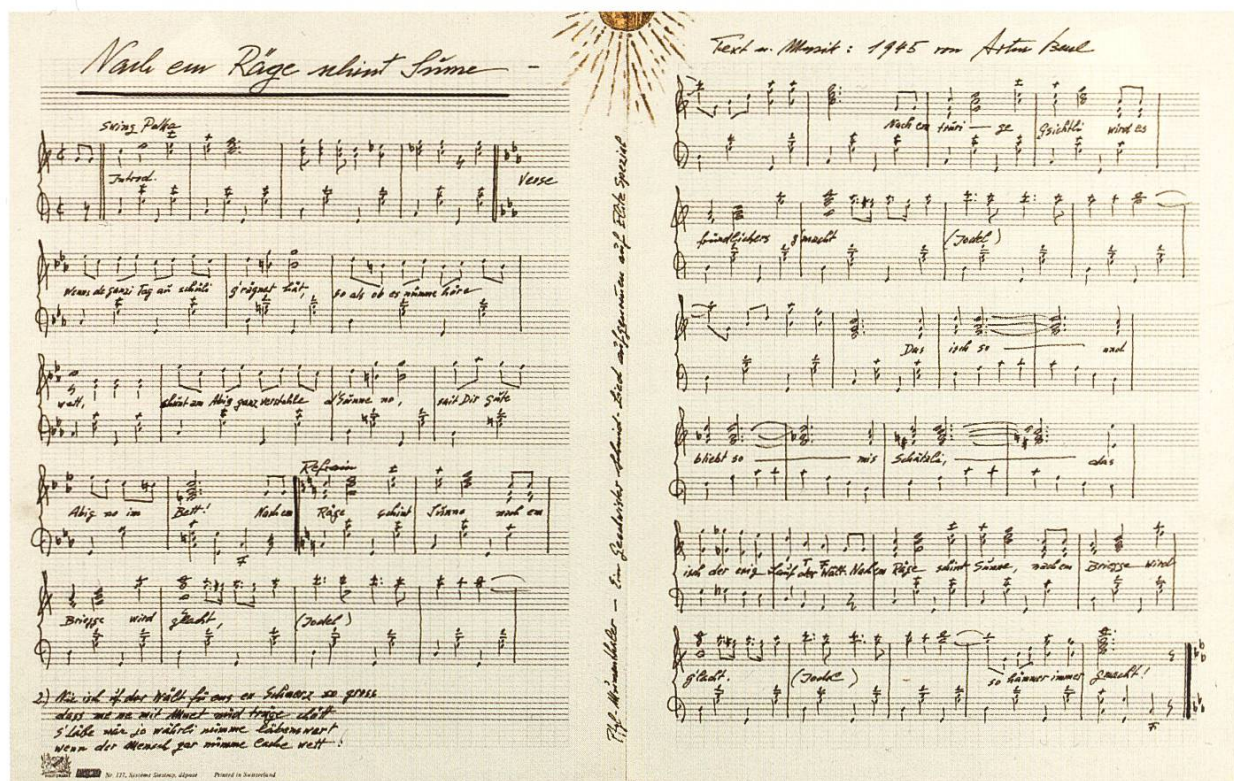 Nach em Räge schint Sunne —
Swing Polka
Introd.
Verse
Wenns de ganzi Tag au schüli g'rägnet hät, so als ob es nümme höre
wett, schint am Abig ganz verstohle d'Sunne no, seit Dir guete
Refrain
Abig no im Bett! Nach em Räge schint Sunne nach em
Briegge wird glacht, (Jodel)
2.) Nie isch uf der Wält für eus en Schmerz so gross
dass me ne mit Muet nöd träge chätt
S'Läbe wär jo währli nümme läbenswert
wenn der Mensch gar nümme lache wett!
Nr. 117, Printed in Switzerland
Ein Geschwister Schmid-Lied aufgenommen auf Elite Spezial
Text u. Musik: 1945 von Artur Beul
Nach em truri — ge Gsichtli wird es
fründlichers g'macht (Jodel)
Das isch so — und
bliebt so — mis Schätzli, — das
isch der ewig Lauf der Wält. Nach em Räge schint Sunne, nach em Briegge wird
g'lacht. (Jodel) so hämmer immer gmacht!